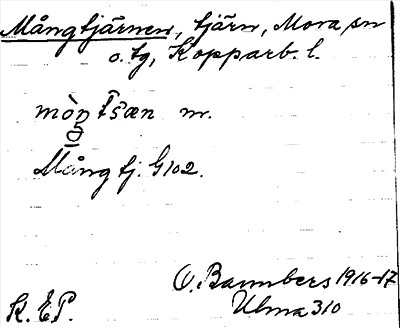 Mångtjärnen, tjärn, Mora sn
o. tg, Kopparb. l.
Mångtj. G102.
O. Bannbers 1916-17
Ulma 310
K. EP.